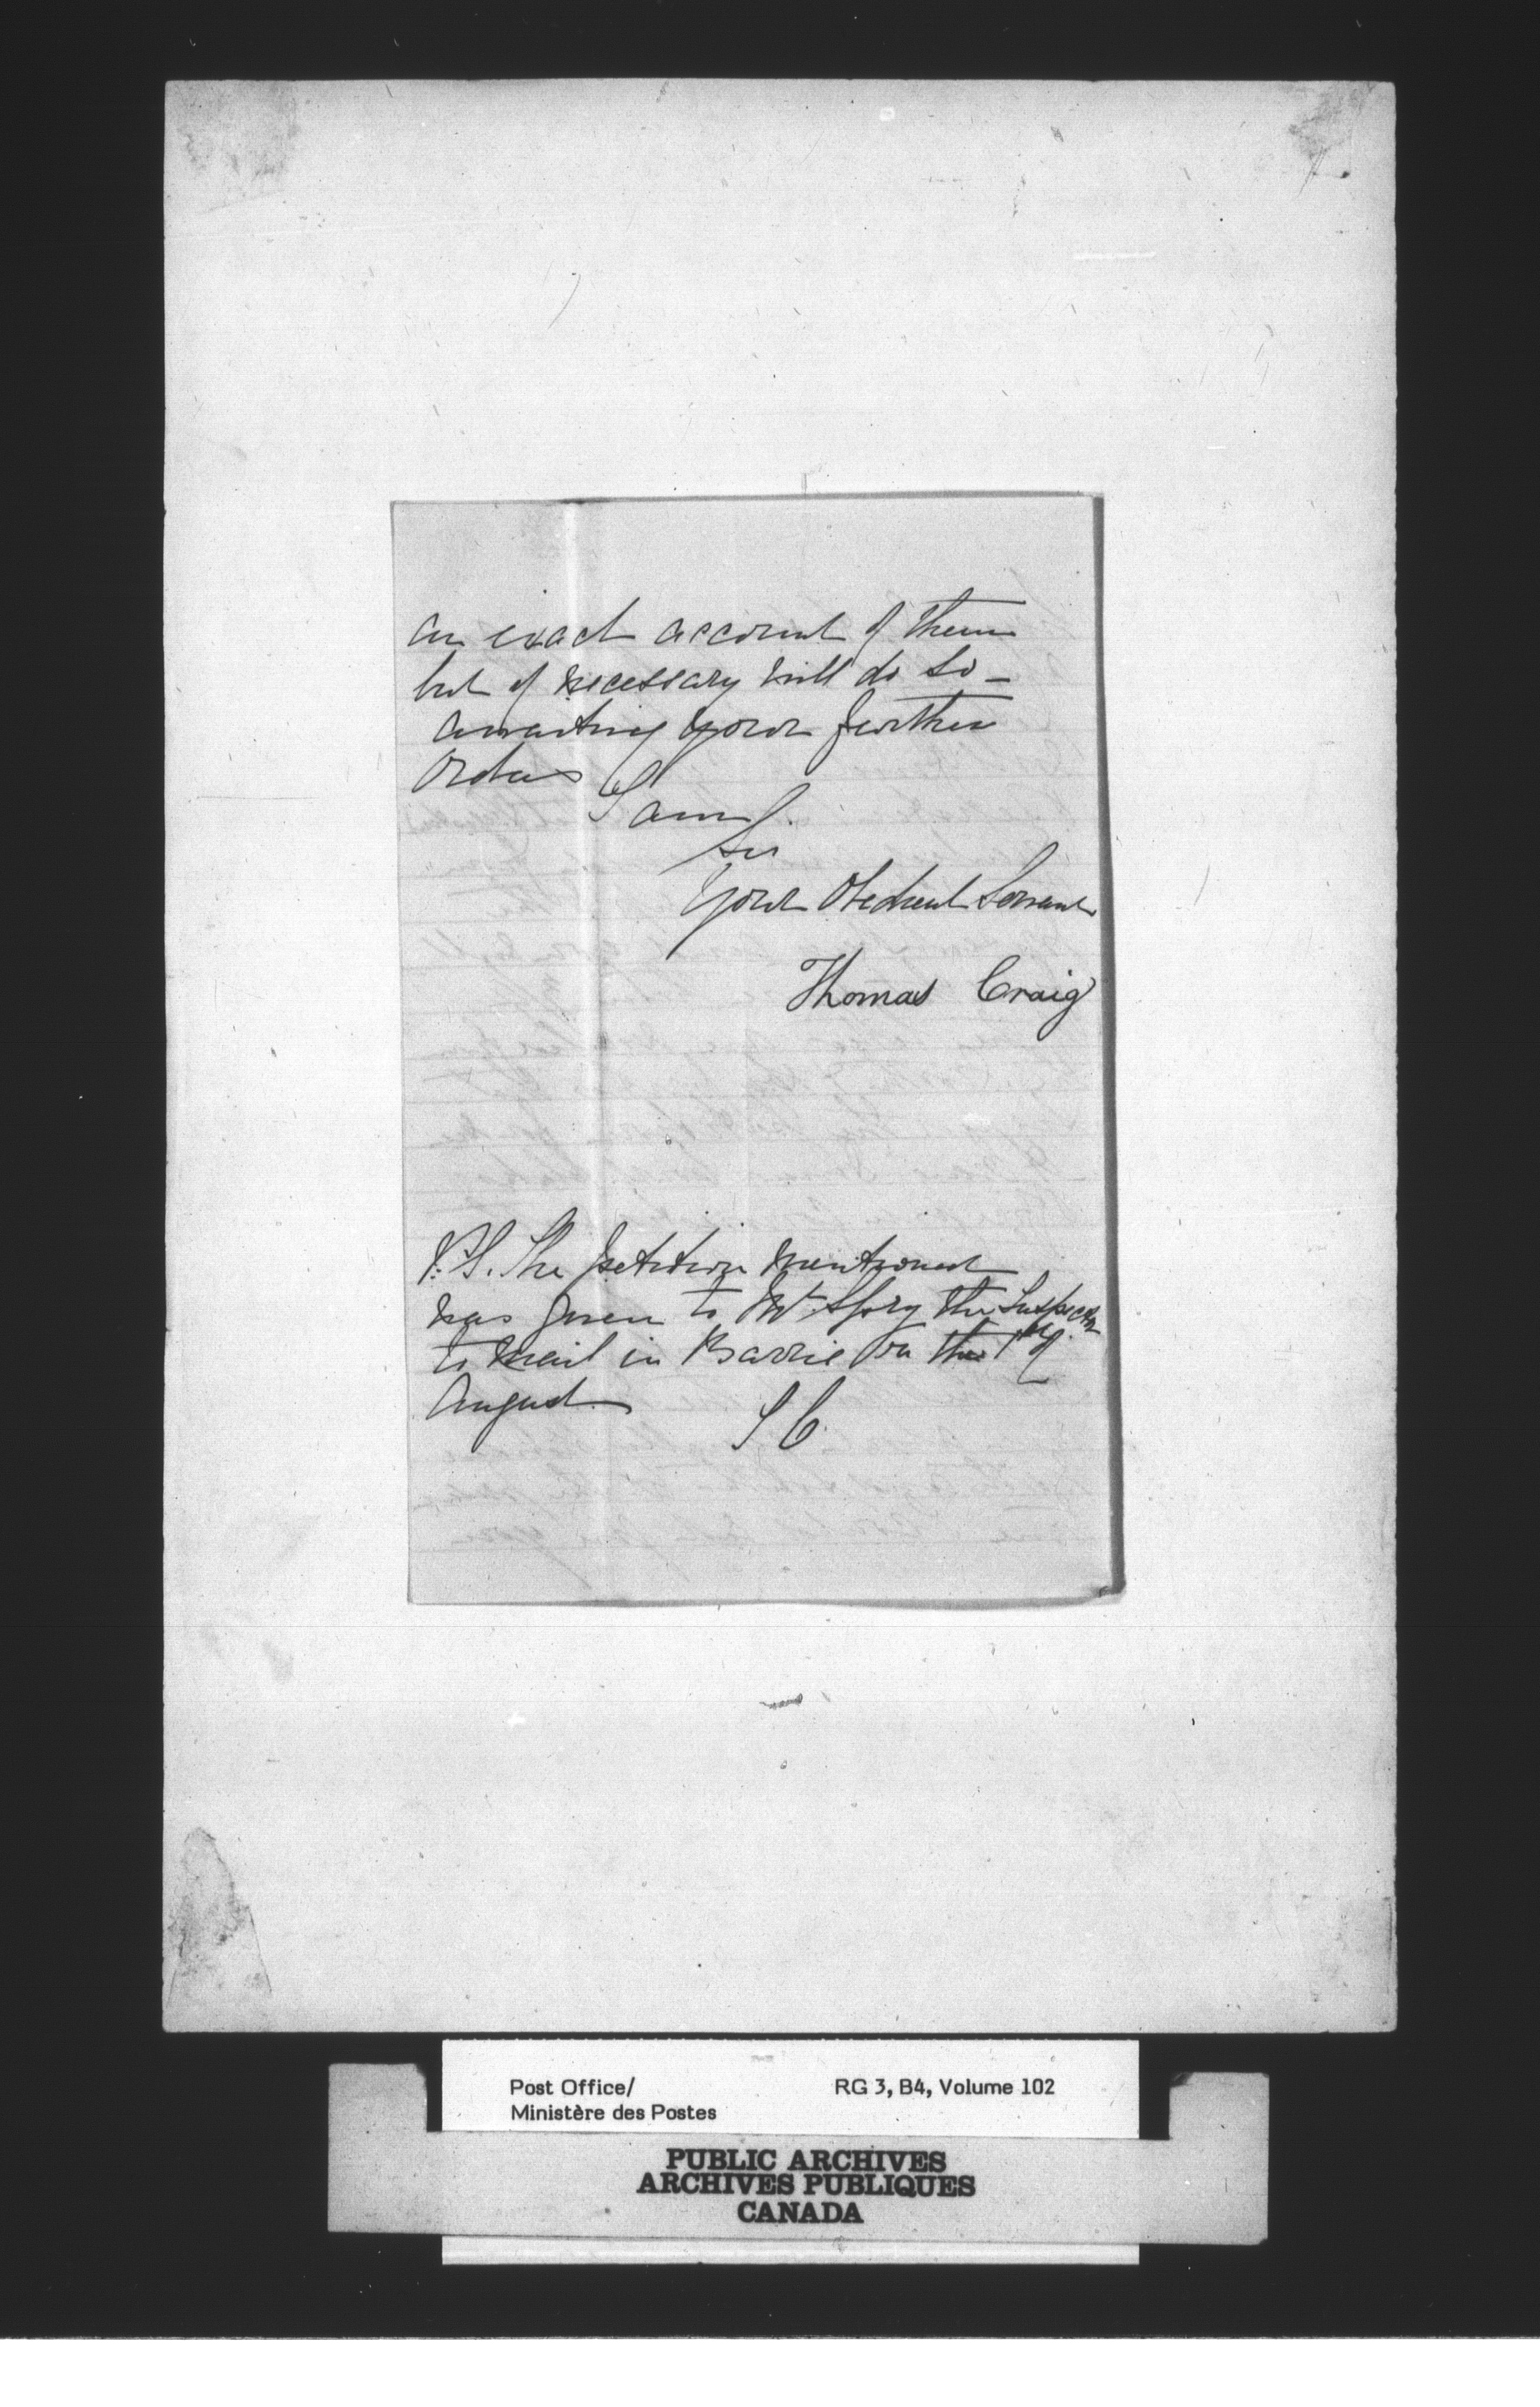 an exact account of them
but if necessary will do so _
awaiting your further
orders
I am
Sir
Your Obedient Servant
Thomas Craig
P.S. The petition mentioned
was given to Mr Spry the Inspector
to mail in Barrie on the 1st of
August
T C.
Post Office/
Ministère des Postes
RG 3, B4, Volume 102
PUBLIC ARCHIVES
ARCHIVES PUBLIQUES
CANADA